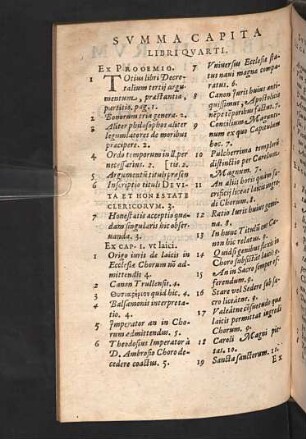 SVMMA CAPITA
LIBRI QVARTI.
EX PROOEMIO.
1 Totius libri Decretalium tertij argumentum, præstantia, partitio. pag. 1.
2 Bonorum tria genera. 2.
3 Aliter philosophos aliter
legumlatores de moribus
præcipere. 2.
4 Ordo temporum in
necessarius. 2.
5 Argumentũ tituli
6 Inscriptio tituli DE VITA
ET HONESTATE
CLERICORVM. 3.
7 Honestatis acceptio quædam
singularis hic observanda. 3.
EX CAP. 1. vt laici.
1 Origo iuris de laicis in
Ecclesiæ Chorum nõ admittendis. 4
2 Canon Trullensis. 4
3 quid hic. 4
4 Balsamonis interpretatio. 4
5 Imperator an in Chorum
admittendus. 5
6 Theodosius Imperator à
D. Ambrosio Choro decedere
coactus. 5
7 Vniversus Ecclesiæ status
navi magnæ comparatus. 6.
8 Canon iuris huius antiquissimus,
Apostolicæ
factæ. 7.
9 Concilium Maguntinum
ex quo Capitulum
hoc. 7.
10 Pulcherrima templi
distinctio per Carolum
Magnum. 7.
11 An alij horis quàm sacrificij
liceat laicis ingredi
Chorum. 8.
12 Ratio Iuris huius genuina. 8.
13 In hunc Titulũ
hic relatus. 9.
14 Quid si genibus flexis in
Choro subsistat laicus. 9
15 An in Sacro semper offerendum. 9
16 Stare vel Sedere sub sacro
liceat. 9.
17 Valetne consuetudo qua
laicis permittat ingredi
Chorum. 9.
18 Caroli Magni pietas. 10.
19 Sancta sanctorum. 10.
EX